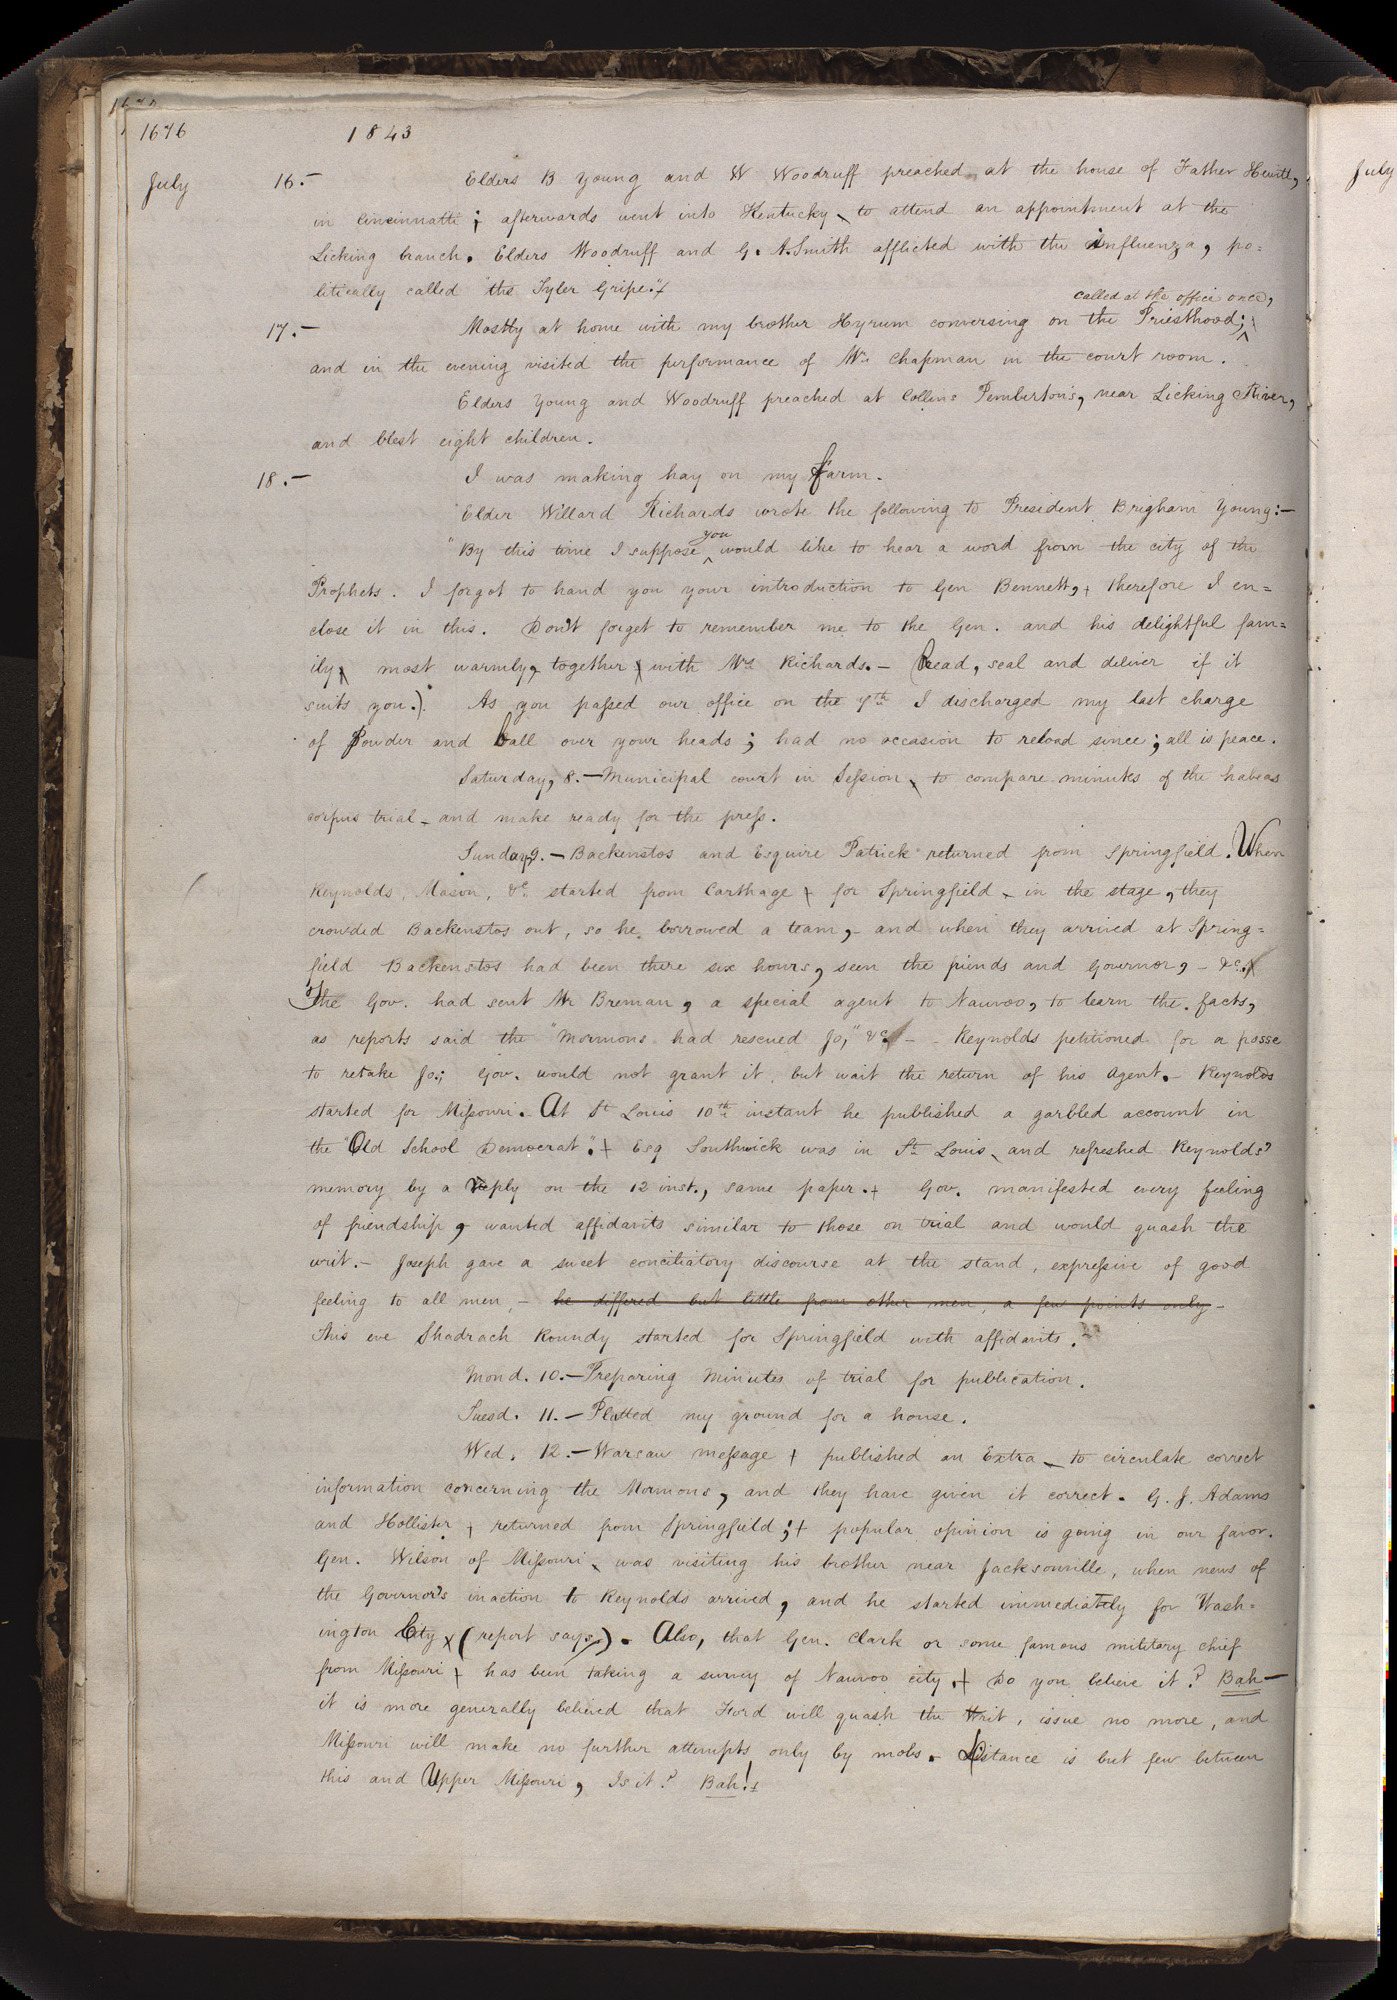 1676 1843
July 16.— Elders B Young and W Woodruff preached at the house of Father Hewitt,
in Cincinnatti; afterwards went into Kentucky to attend an appointment at the
Licking branch. Elders Woodruff and G. A. Smith afflicted with the influenza, po=
litically called "the Tyler Gripe."
called at the office once,
17.— Mostly at home with my brother Hyrum conversing on the Priesthood; ^
and in the evening visited the performance of Mr. Chapman in the court room.
Elders Young and Woodruff preached at Collins Pemberton's, near Licking River,
and blest eight children.
18.— I was making hay on my farm.
Elder Willard Richards wrote the following to President Brigham Young:—
you
"By this time I suppose ^ would like to hear a word from the city of the
Prophets. I forgot to hand you your introduction to Gen Bennett, therefore I en=
close it in this. Don't forget to remember me to the Gen. and his delightful fam=
ily, most warmly, together with Mrs Richards.— (Read, seal and deliver if it
suits you.) As you passed our office on the 7th I discharged my last charge
of powder and ball over your heads; had no occasion to reload since; all is peace.
Saturday, 8.— Municipal court in Session to compare minutes of the habeas
corpus trial and make ready for the press.
Sunday 9.— Backenstos and Esquire Patrick returned from Springfield. When
Reynolds, Mason, &c. started from Carthage for Springfield in the stage, they
crowded Backenstos out, so he borrowed a team, and when they arrived at Spring=
field Backenstos had been there six hours, seen the friends and Governor, — &c.
The Gov. had sent Mr Breman, a special agent to Nauvoo, to learn the facts,
as reports said the "Mormons had rescued Jo," &c. — Reynolds petitioned for a posse
to retake Jo.; Gov. would not grant it, but wait the return of his Agent. Reynolds
started for Missouri. At St Louis 10th instant he published a garbled account in
the "Old School Democrat". Esq Southwick was in St. Louis and refreshed Reynolds'
memory by a reply on the 12 inst., same paper. Gov. manifested every feeling
of friendship, wanted affidavits similar to those on trial and would quash the
writ.— Joseph gave a sweet conciliatory discourse at the stand, expressive of good
feeling to all men, — he differed but little from other men, a few points only —
This eve Shadrach Roundy started for Springfield with affidavits.
Mond. 10.— Preparing Minutes of trial for publication.
Tuesd. 11.— Platted my ground for a house.
Wed. 12.— Warsaw message published an Extra to circulate correct
information concerning the Mormons, and they have given it correct. G. J. Adams
and Hollister returned from Springfield; popular opinion is going in our favor.
Gen. Wilson of Missouri was visiting his brother near Jacksonville, when news of
the Governor's inaction to Reynolds arrived, and he started immediately for Wash=
ington City (report says). Also, that Gen. Clark or some famous military chief
from Missouri has been taking a survey of Nauvoo city. Do you believe it? Bah—
it is more generally believed that Ford will quash the Writ, issue no more, and
Missouri will make no further attempts only by mobs. Distance is but few between
this and Upper Missouri, Is it? Bah!
July